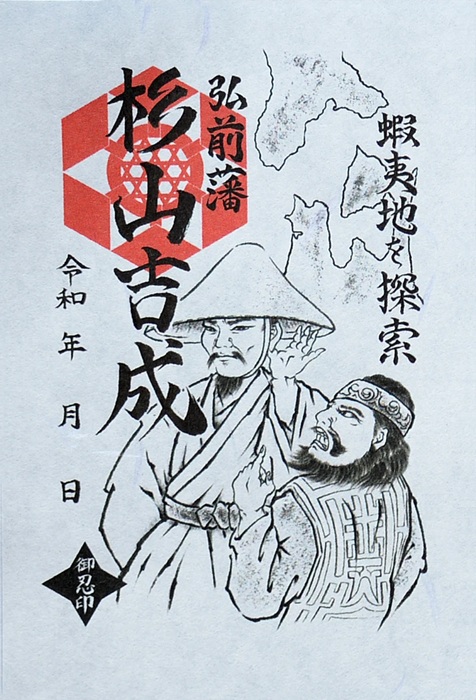 蝦夷地を探索
弘前藩
杉山吉成
令和 年 月 日
御忍印